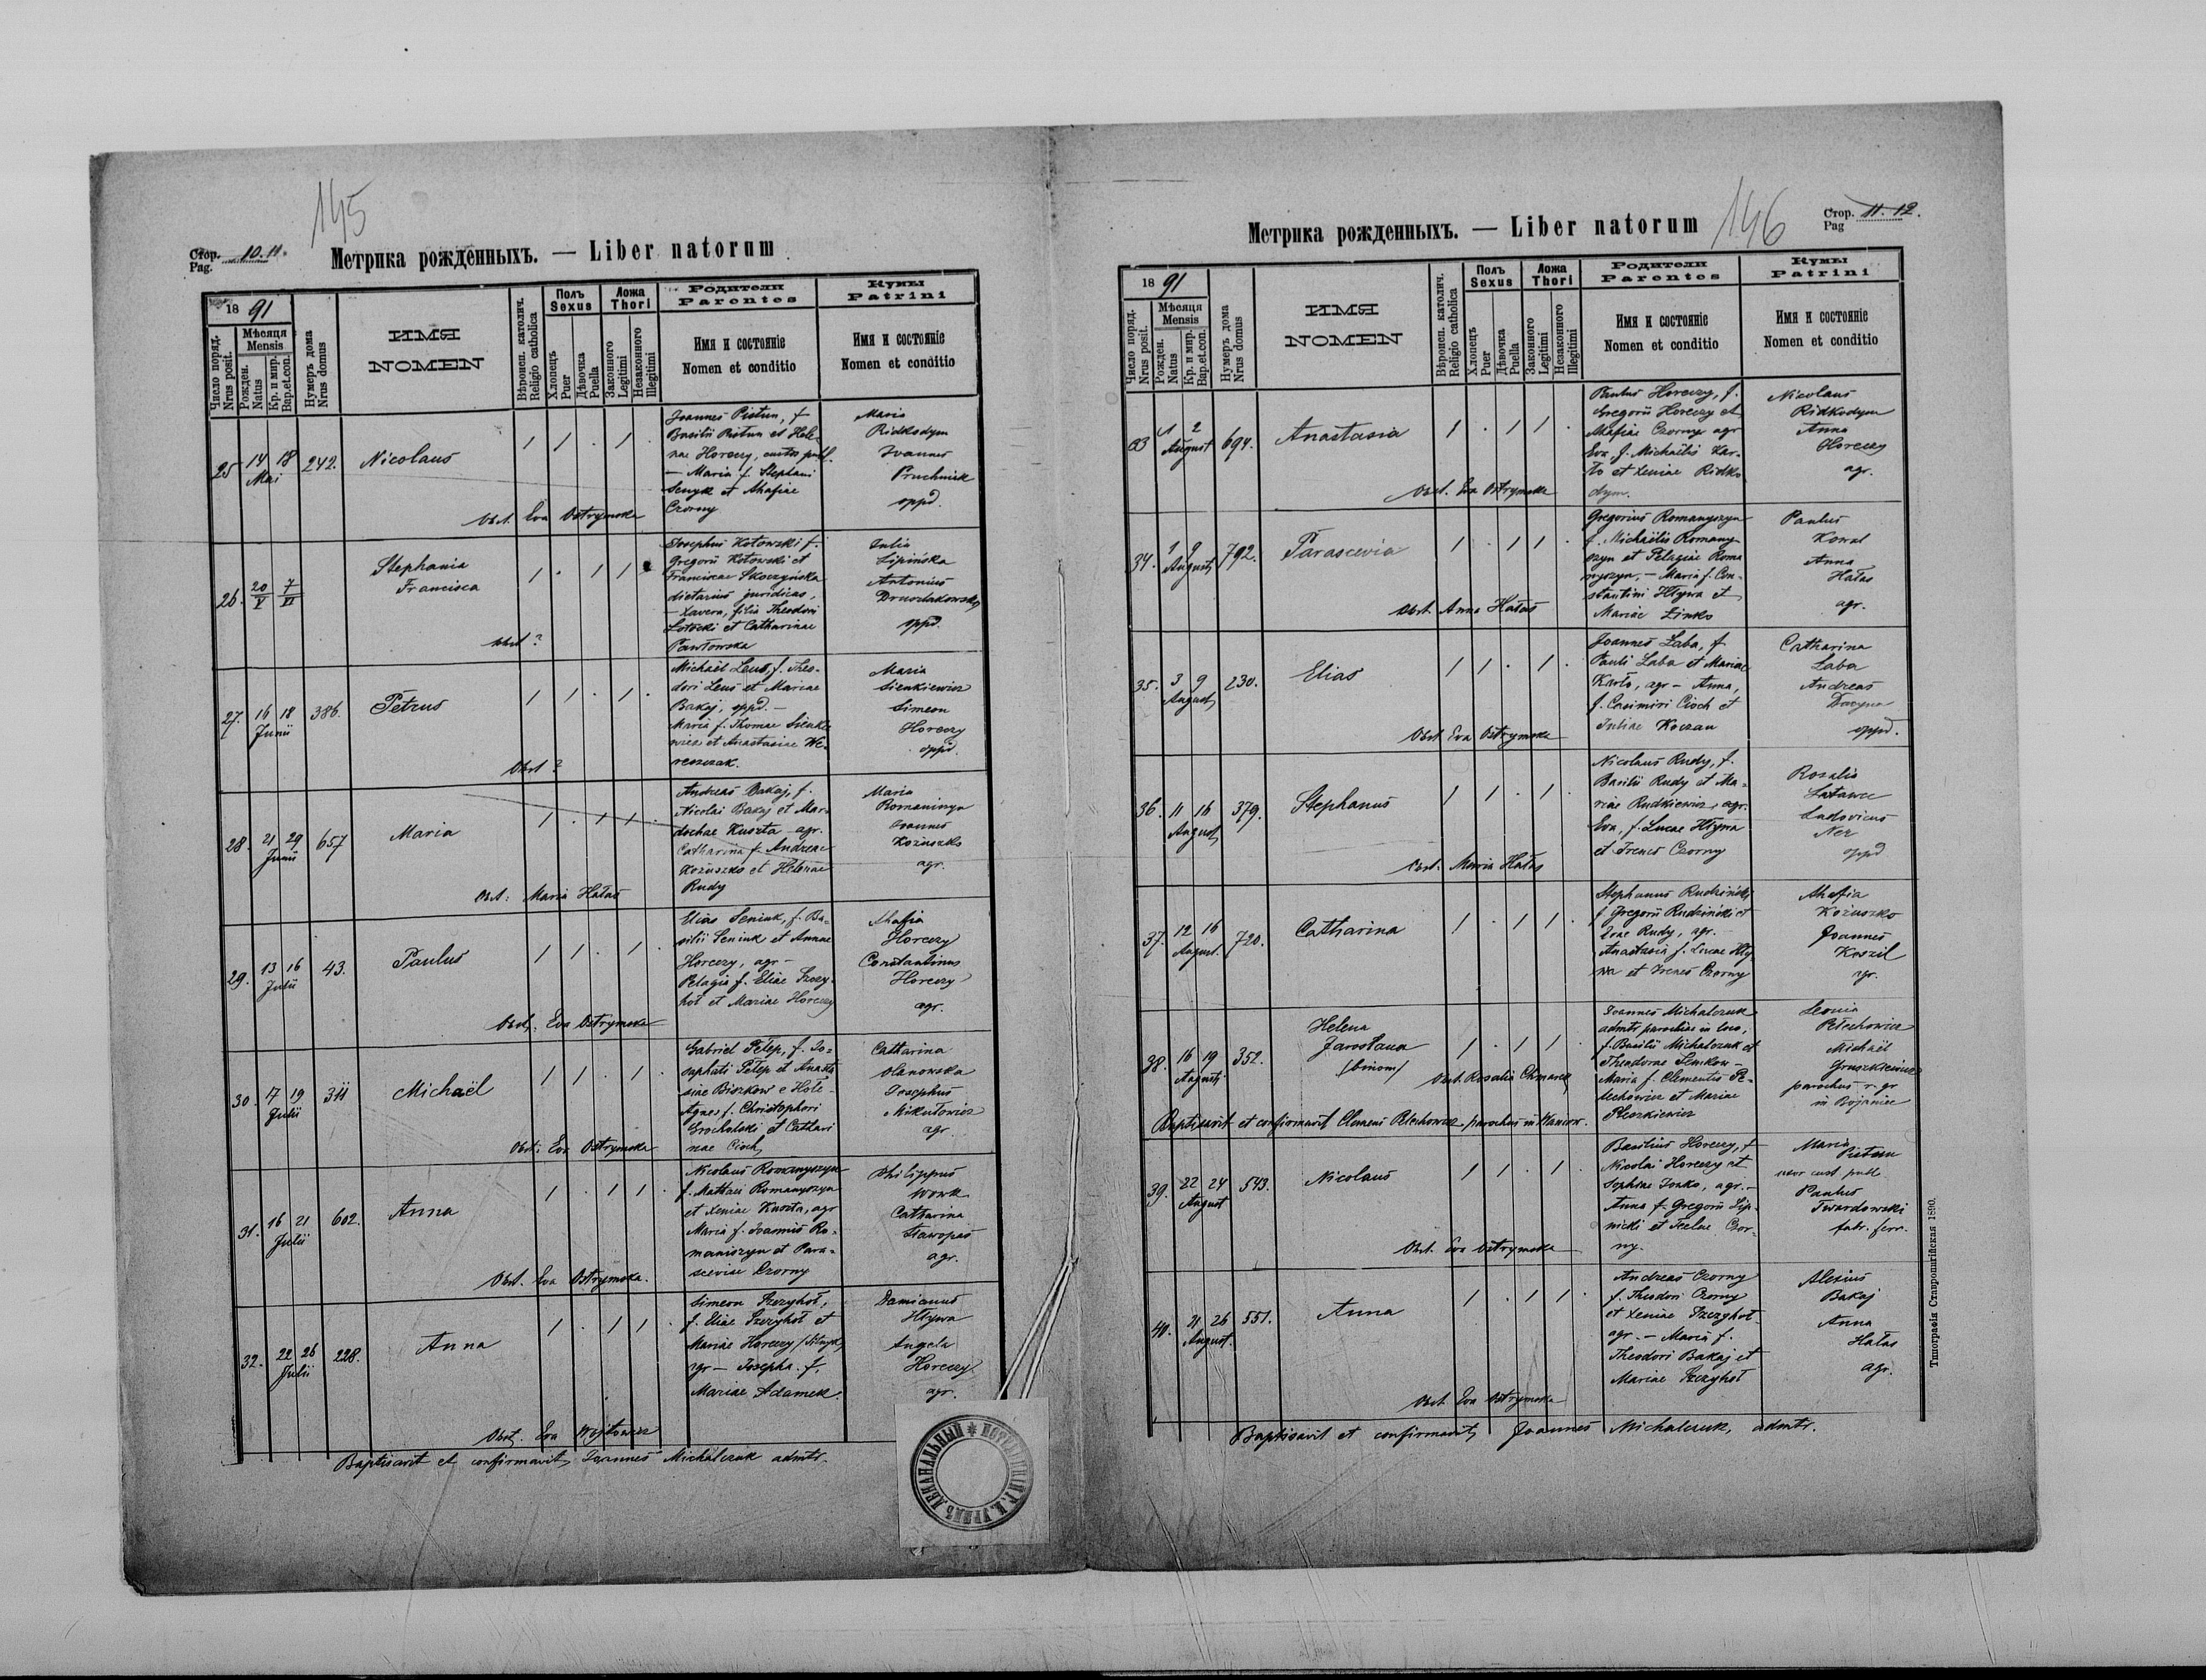 145
Стор. 10. 11.
Pag.
Метрика рожденныхъ. — Liber natorum
18 91
Число поряд.
Nrus posit.
Мѣсяця
Mensis
Рожден.
Natus
Кр. и мир.
Bap.et.con.
Нумеръ дома
Nrus domus
ИМЯ
NOMEN
Вѣроисп. католич.
Religio catholica
Полъ
Sexus
Хлопецъ
Puer
Дѣвочка
Puella
Ложа
Thori
Законного
Legitimi
Незаконного
Illegitimi
Родители
Parentes
Имя и состояніе
Nomen et conditio
Кумы
Patrini
Имя и состояніе
Nomen et conditio
25 14 18 Mai 242. Nicolaus
Joannes Pistun, f.
Basilii Pistun et Hele-
nae Horeczy, custos publ.
— Maria f. Stephani
Senyk et Ahafiae
Czorny
Maria
Ridkodym
Joannes
Pruchnik
oppd.
Obst. Eva Ostrymska
26. 20/V 7/VI Stephania
Francisca
Josephus Kotowski f.
Gregorii Kotowski et
Franciscae Skoczyńska
dietarius juridicus,
— Xavera, filia Theodori
Łotocki et Catharinae
Pawłowska
Julia
Lipińska
Antonius
oppd.
Obst ?
27. 16 18 Junii 386. Petrus
Michaël Leus, f. Theo-
dori Leus et Mariae
Bakaj, oppd. —
Maria f. Thomae Sienkie
wicz et Anastasiae We-
reszczak.
Maria
Sienkiewicz
Simeon
Horeczy
oppd.
Obst ?
28. 21 29 Junii 657 Maria
Andreas Bakaj, f.
Nicolai Bakaj et Mar-
dochae Kuszta — agr.
Catharina f. Andreae
Kożuszko et Helenae
Rudy
Maria
Romaninyn
Joannes
Kożuszko
agr.
Obst: Maria Hałas
29. 13 16 Julii 43. Paulus
Elias Seniuk, f. Ba-
silii Seniuk et Annae
Horeczy, agr —
Pelagia f. Eliae Szczy-
hoł et Mariae Horeczy
Ahafia
Horeczy
Constantinus
Horeczy
agr.
Obst: Eva Ostrymska
30. 17 19 Julii 311 Michaël
Gabriel Pełep, f. Jo-
saphati Pełep et Anasta
siae Biszkow e Hole —
Agnes f. Christophori
Grocholski et Cathari
nae Cioch
Catharina
Olanowska
Josephus
Mikułowicz
agr.
Obst: Eva Ostrymska
31. 16 21 Julii 602. Anna
Nicolaus Romanyszyn
f. Matthaei Romanyszyn
et Xeniae Kuszta, agr
Maria f. Joannis Ro-
maniszyn et Para-
sceviae Czorny
Philippus
Wowk
Catharina
Stawopas
agr.
Obst. Eva Ostrymska.
32. 22 26 Julii 228. Anna
Simeon Szczyhoł,
f. Eliae Szczyhoł et
Mariae Horeczy
agr — Josepha f.
Mariae Adamek.
Damianus
Hływa
Angela
Horeczy
agr.
Obst. Eva Wojtowicz
Baptisavit et confirmavit Joannes Michalczuk admtr.
146
Стор. 11. 12.
Pag
Метрика рожденныхъ. — Liber natorum
18 91
Число поряд.
Nrus posit.
Мѣсяця
Mensis
Рожден.
Natus
Кр. и мир.
Bap.et.con.
Нумеръ дома
Nrus domus
ИМЯ
NOMEN
Вѣроисп. католич.
Religio catholica
Полъ
Sexus
Хлопецъ
Puer
Дѣвочка
Puella
Ложа
Thori
Законного
Legitimi
Незаконного
Illegitimi
Родители
Parentes
Имя и состояніе
Nomen et conditio
Кумы
Patrini
Имя и состояніе
Nomen et conditio
33 1 2 August 694. Anastasia
Paulus Horeczy, f.
Gregorii Horeczy et
Ahafiae Czorny agr
Eva f. Michaëlis Kar-
ło et Xeniae Ridko
dym.
Nicolaus
Ridkodym
Anna
Horeczy
agr.
Obst. Eva Ostrymska
34. 9 9 August 792. Parascevia
Gregorius Romanyszyn
f. Michaëlis Romany
szyn et Pelagiae Roma
nyszyn, — Maria f. Con-
stantini Hływa et
Mariae Zinko
Paulus
Kowal
Anna
Hałas
agr.
Obst. Anna Hałas
35. 3 9 August 230. Elias
Joannes Łaba, f
Pauli Łaba et Mariae
Karło, agr — Anna,
f. Casimiri Cioch et
Juliae Koczan
Catharina
Łaba
Andreas
oppd.
Obst Eva Ostrymska
36. 11 16 August 379. Stephanus
Nicolaus Rudy, f.
Basilii Rudy et Ma-
riae Rudkiewicz, agr.
Eva, f. Lucae Hływa
et Irenes Czorny
Rozalia
Latawce
Ludovicus
Nez
oppd
Obst: Maria Hałas
37. 12 16 August. 720. Catharina
Stephanus Rudziński
f Gregorii Rudziński et
Evae Rudy, agr. —
Anastasia f. Lucae Hły
wa et Irenes Czorny
Ahafia
Kożuszko
Joannes
Koszil
agr.
38. 16 19 August. 352. Helena
Jarosława
(binom)
Joannes Michalczuk
admtr parochiae in loco,
f. Basilii Michalczuk et
Theodorae Senkow —
Maria f. Clementis Pe-
lechowicz et Mariae
Pleszkiewicz
Leonia
Pelechowicz
Michaël
Gruszkiewicz
parochus r. gr
in Bojaniec
Obst. Rosalia Chmarek
Baptisavit et confirmavit Clemens Pelechowicz, parochus in Kamion.
39. 22 24 August 543. Nicolaus
Basilius Horeczy, f
Nicolai Horeczy et
Sophiae Jonko, agr. —
Anna f. Gregorii Lip-
nicki et Teclae Czor-
ny.
Maria
Pistun
uxor cust publ
Paulus
Twardowski
fabr. ferr.
Obst. Eva Ostrymska
40. 21 26 August. 551. Anna
Andreas Czorny
f. Theodori Czorny
et Xeniae Szczyhoł
agr. — Maria f.
Theodori Bakaj et
Mariae Szczyhoł
Alexius
Bakaj
Anna
Hałas
agr.
Obst. Eva Ostrymska
Baptisavit et confirmavit Joannes Michalczuk, admtr.
Типографія Ставропигійская 1890.